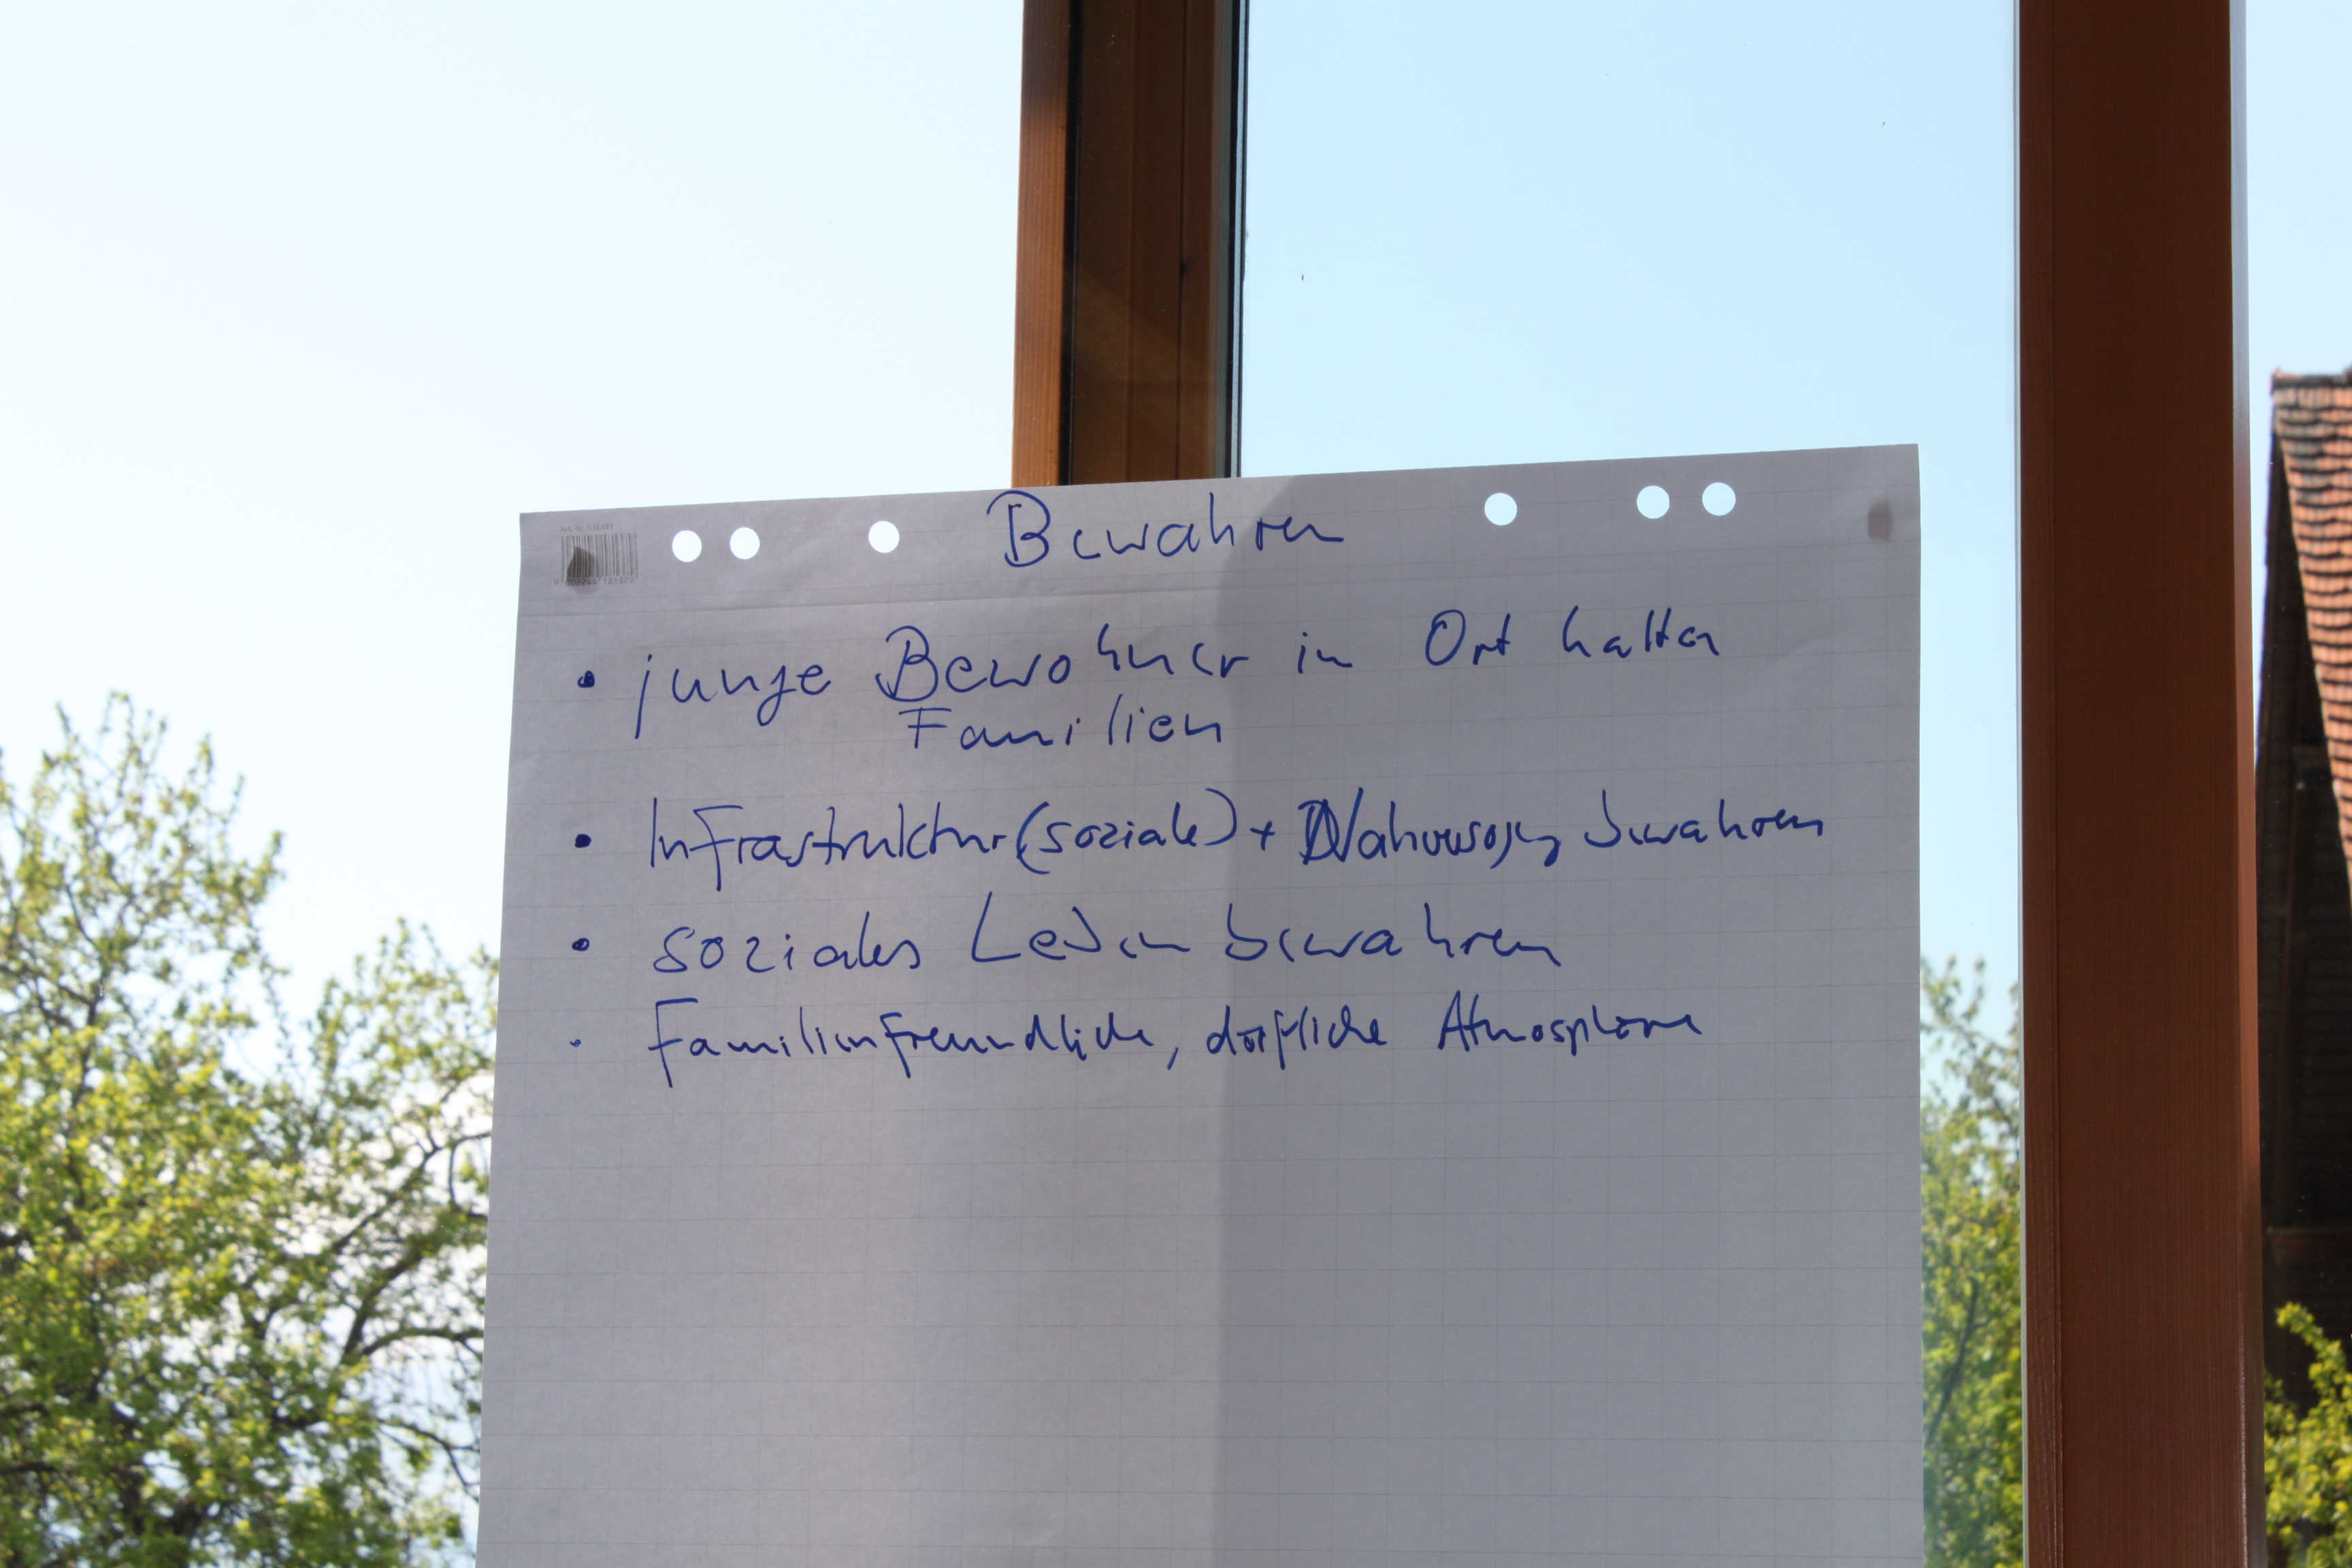 Art. Nr. 936441
Bewahren
• junge Bewohner in Ort halten
Familien
• Infrastruktur (soziale) + Nahversorgung bewahren
• soziales Leben bewahren
• Familienfreundliche, dörfliche Atmosphäre